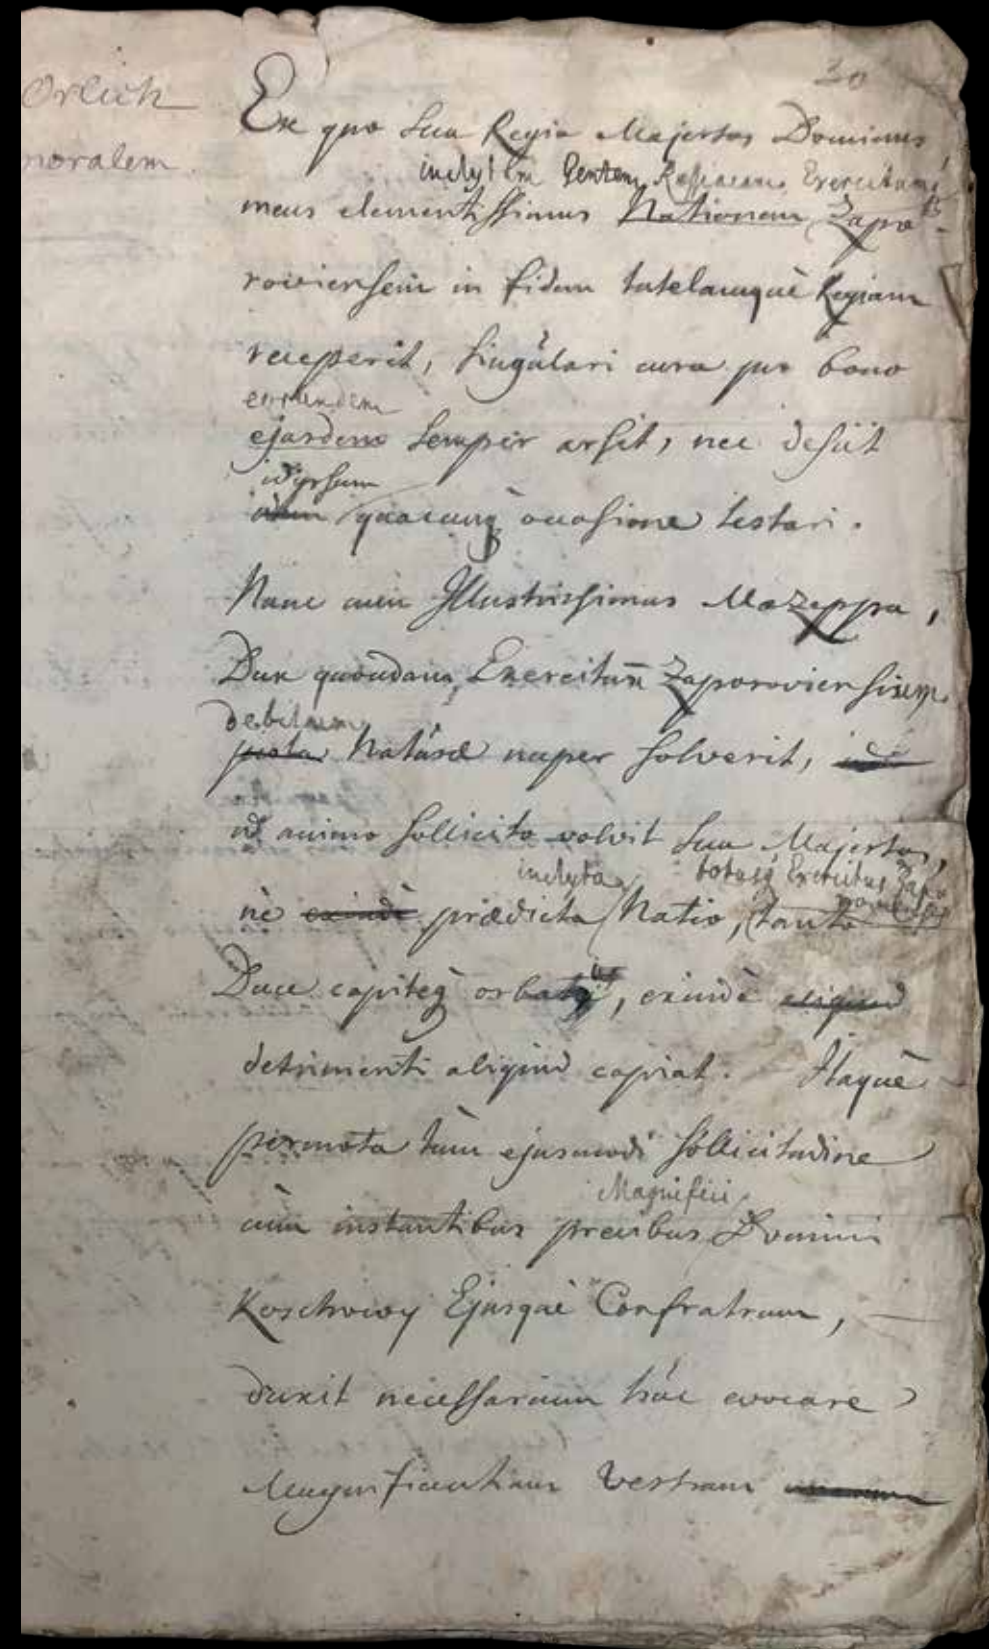 30
Orlich
noralem
Ex quo Sua Regia Majestas Dominus
inclytam Gentem Rossiacam Exercitumq
meus clementissimus Nationem Zapo-
roviensem in fidem tutelamquè Regiam
receperit, singulari cura pro bono
eorundem
ejusdem semper arsit, nec desiit
idipsum
idem quacunq occasione testari.
Nunc cum Illustrissimus Mazeppa,
Dux quondam Exercitum Zaporoviensium
debitum
justa Naturæ nuper solverit,
id animo sollicito volvit Sua Majestas,
inclyta totusq Exercitus Zapo
nè exindè prædicta Natio, tanto
Duce capiteq orbat, exindè aliquid
detrimenti aliquid capiat. Itaquè
permota tùm ejusmodi sollicitudine
Magnifici
cùm instantibus precibus Domini
Koschowoy Ejusquè Confratrum,
duxit necessarium hùc evocare
Magnificentiam Vestram